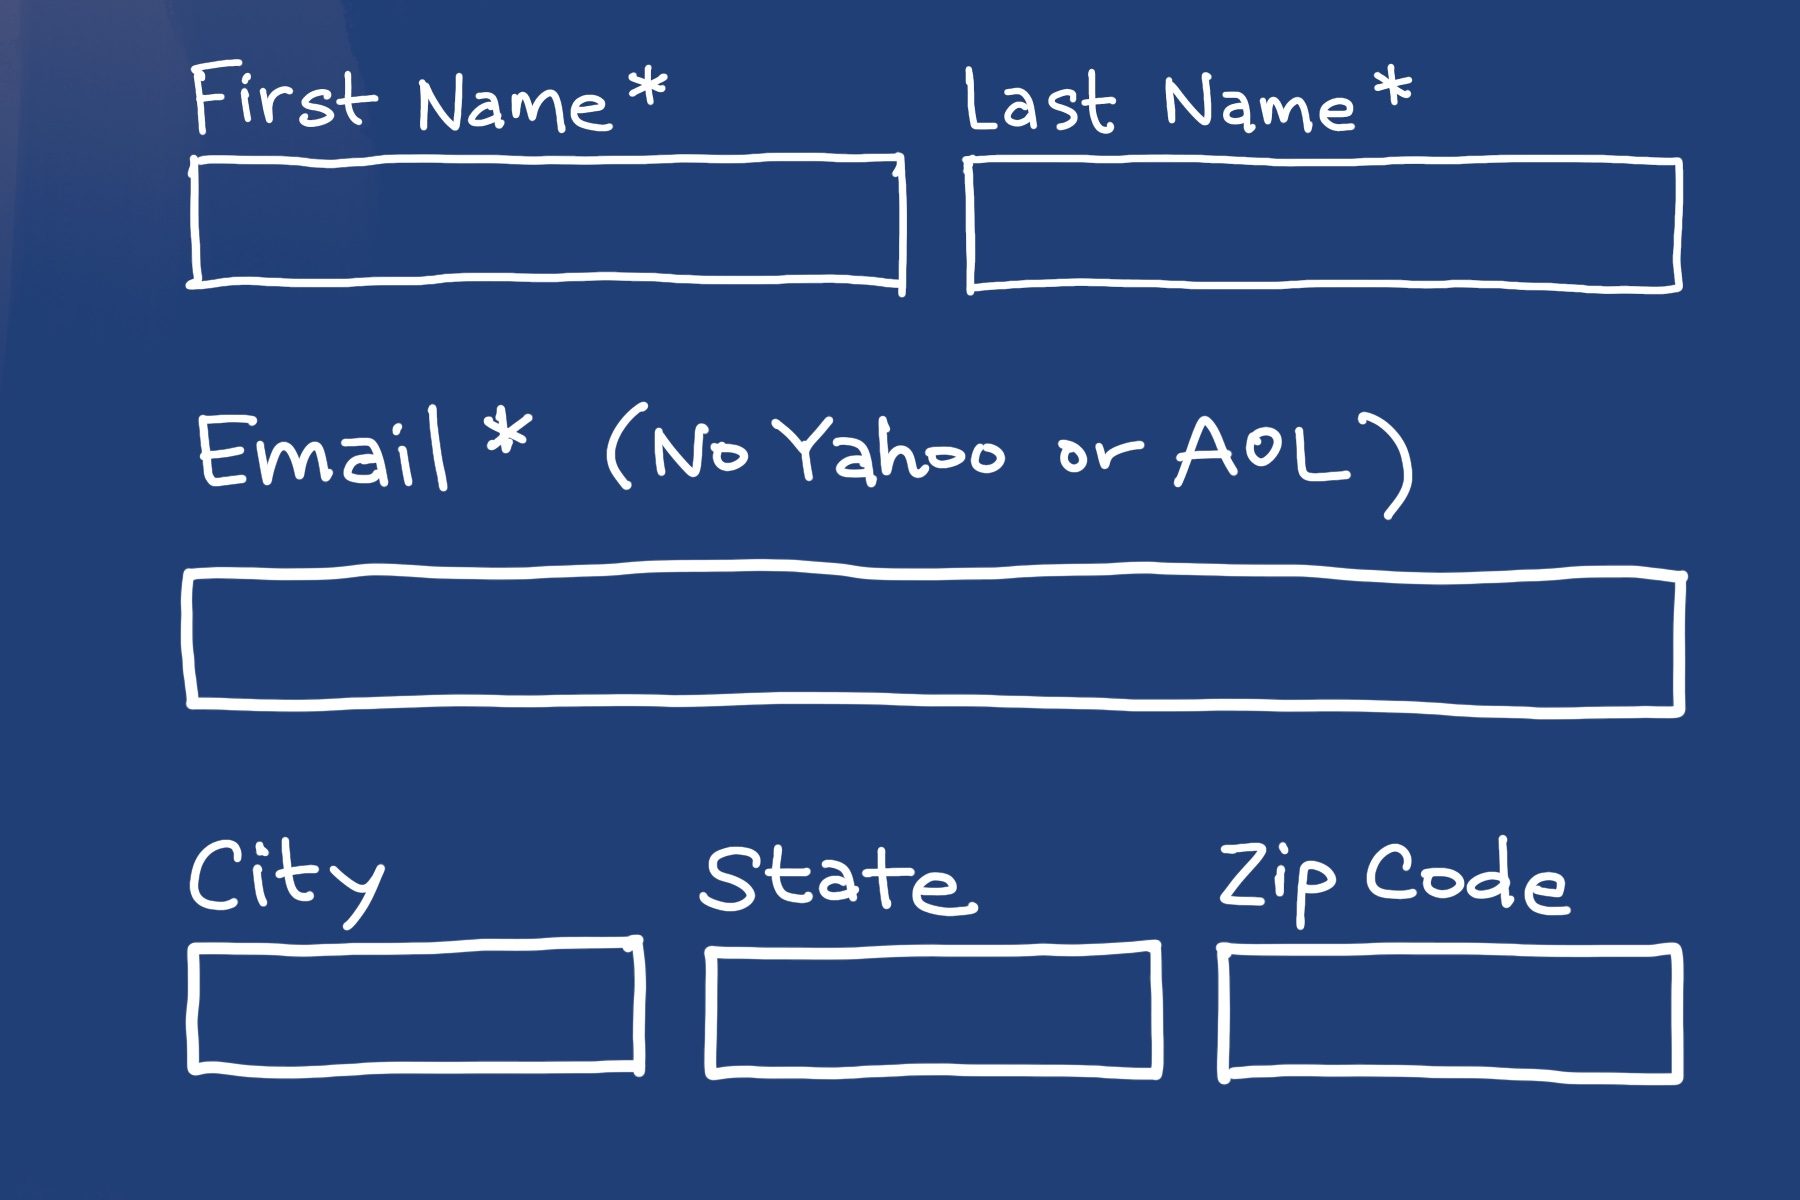 First Name* Last Name*
Email* (No Yahoo or AOL)
City State Zip Code